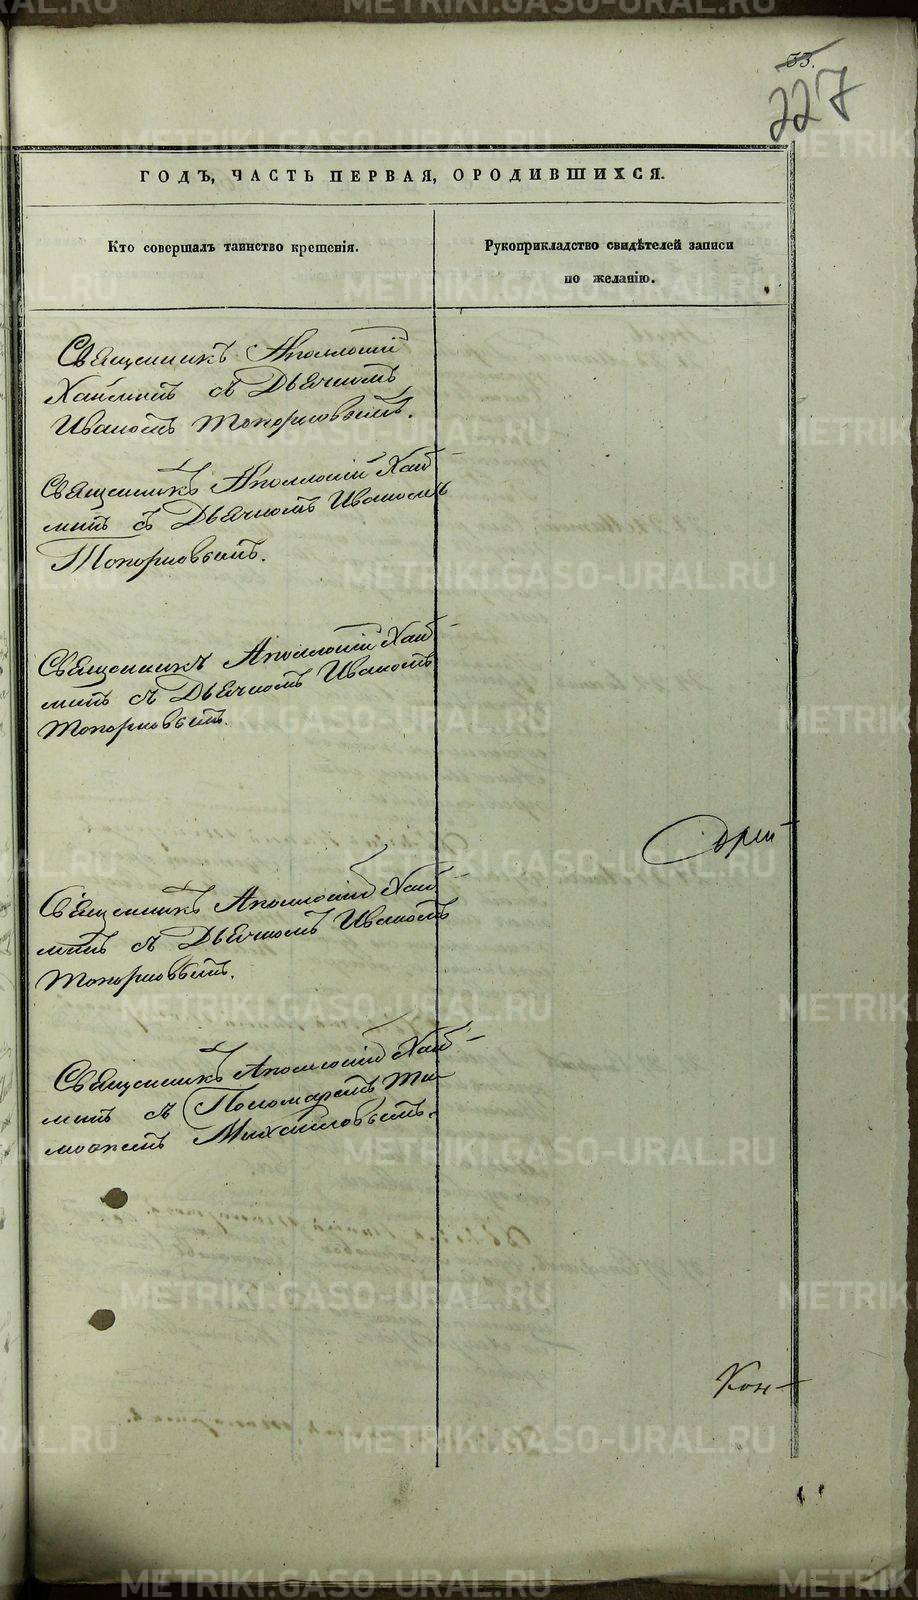 33.
227
ГОДЪ, ЧАСТЬ ПЕРВАЯ, О РОДИВШИХСЯ.
Кто совершалъ таинство крещенія.
Рукоприкладство свидѣтелей записи
по желанію.
Священникъ Аполлоній
съ Дьячкомъ
Иваномъ Топорковымъ.
Священникъ Аполлоній
съ Дьячкомъ Иваномъ
Топорковымъ.
Священникъ Аполлоній
съ Дьячкомъ Иваномъ
Топорковымъ.
Священникъ Аполлоній
съ Дьячкомъ Иваномъ
Топорковымъ.
Священникъ Аполлоній
съ Пономаремъ Ти-
моѳеемъ Михайловымъ.
Кон-
METRIKI.GASO-URAL.RU